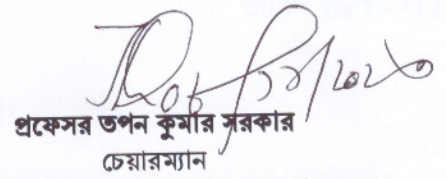 প্রফেসর তপন কুমার সরকার
চেয়ারম্যান